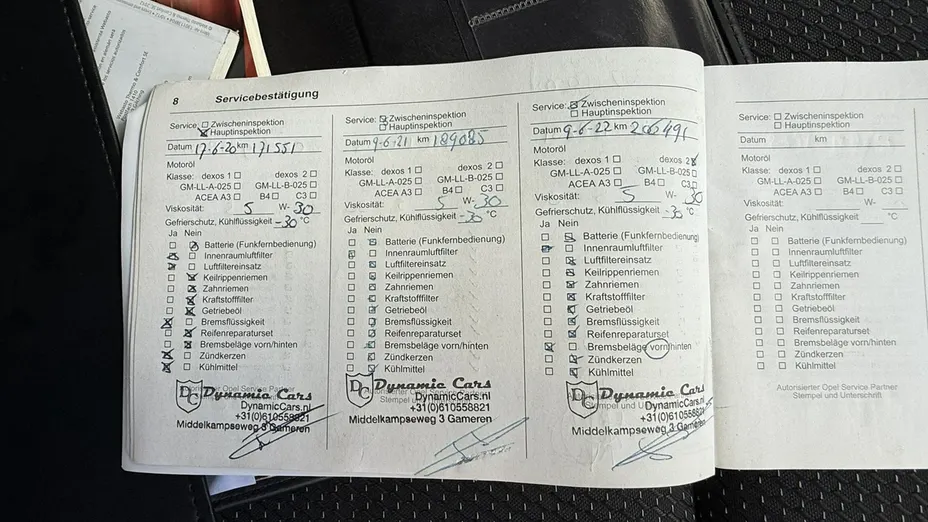 8 Servicebestätigung
Service: Zwischeninspektion
Hauptinspektion
Datum 17-6-20 km 171551
Motoröl
Klasse: dexos 1 dexos 2
GM-LL-A-025 GM-LL-B-025
ACEA A3 B4 C3
Viskosität: 5 W- 30
Gefrierschutz, Kühlflüssigkeit -30 °C
Ja Nein
Batterie (Funkfernbedienung)
Innenraumluftfilter
Luftfiltereinsatz
Keilrippenriemen
Zahnriemen
Kraftstofffilter
Getriebeöl
Bremsflüssigkeit
Reifenreparaturset
Bremsbeläge vorn/hinten
Zündkerzen
Kühlmittel
Autorisierter Opel Service Partner
DC Dynamic Cars
DynamicCars.nl
+31(0)610558821
Middelkampseweg 3 Gameren
Service: Zwischeninspektion
Hauptinspektion
Datum 9-6-21 km 189085
Motoröl
Klasse: dexos 1 dexos 2
GM-LL-A-025 GM-LL-B-025
ACEA A3 B4 C3
Viskosität: 5 W- 30
Gefrierschutz, Kühlflüssigkeit -30 °C
Ja Nein
Batterie (Funkfernbedienung)
Innenraumluftfilter
Luftfiltereinsatz
Keilrippenriemen
Zahnriemen
Kraftstofffilter
Getriebeöl
Bremsflüssigkeit
Reifenreparaturset
Bremsbeläge vorn/hinten
Zündkerzen
Kühlmittel
DC Dynamic Cars
DynamicCars.nl
Stempel und
+31(0)610558821
Middelkampseweg 3 Gameren
Service: Zwischeninspektion
Hauptinspektion
Datum 9-6-22 km 206491
Motoröl
Klasse: dexos 1 dexos 2
GM-LL-A-025 GM-LL-B-025
ACEA A3 B4 C3
Viskosität: 5 W- 30
Gefrierschutz, Kühlflüssigkeit -30 °C
Ja Nein
Batterie (Funkfernbedienung)
Innenraumluftfilter
Luftfiltereinsatz
Keilrippenriemen
Zahnriemen
Kraftstofffilter
Getriebeöl
Bremsflüssigkeit
Reifenreparaturset
Bremsbeläge vorn/hinten
Zündkerzen
Kühlmittel
DC Dynamic Cars
DynamicCars.nl
+31(0)610558821
Middelkampseweg 3 Gameren
Service: Zwischeninspektion
Hauptinspektion
Datum km
Motoröl
Klasse: dexos 1 dexos 2
GM-LL-A-025 GM-LL-B-025
ACEA A3 B4 C3
Viskosität: W-
Gefrierschutz, Kühlflüssigkeit °C
Ja Nein
Batterie (Funkfernbedienung)
Innenraumluftfilter
Luftfiltereinsatz
Keilrippenriemen
Zahnriemen
Kraftstofffilter
Getriebeöl
Bremsflüssigkeit
Reifenreparaturset
Bremsbeläge vorn/hinten
Zündkerzen
Kühlmittel
Autorisierter Opel Service Partner
Stempel und Unterschrift